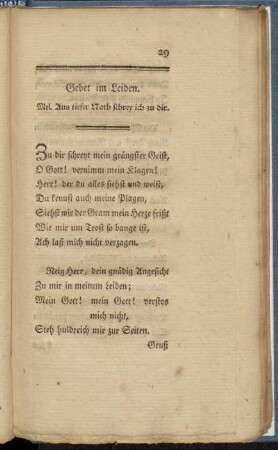 29
Gebet im Leiden.
Mel. Aus tiefer Noth schrey ich zu dir.
Zu dir schreyt mein geängster Geist,
O Gott! vernimm mein Klagen!
Herr! der du alles siehst und weißt,
Du kennst auch meine Plagen,
Siehst wie der Gram mein Herze frißt
Wie mir um Trost so bange ist,
Ach laß mich nicht verzagen.
Neig Herr, dein gnädig Angesicht
Zu mir in meinem Leiden;
Mein Gott! mein Gott! verstos
mich nicht,
Steh huldreich mir zur Seiten.
Geuß